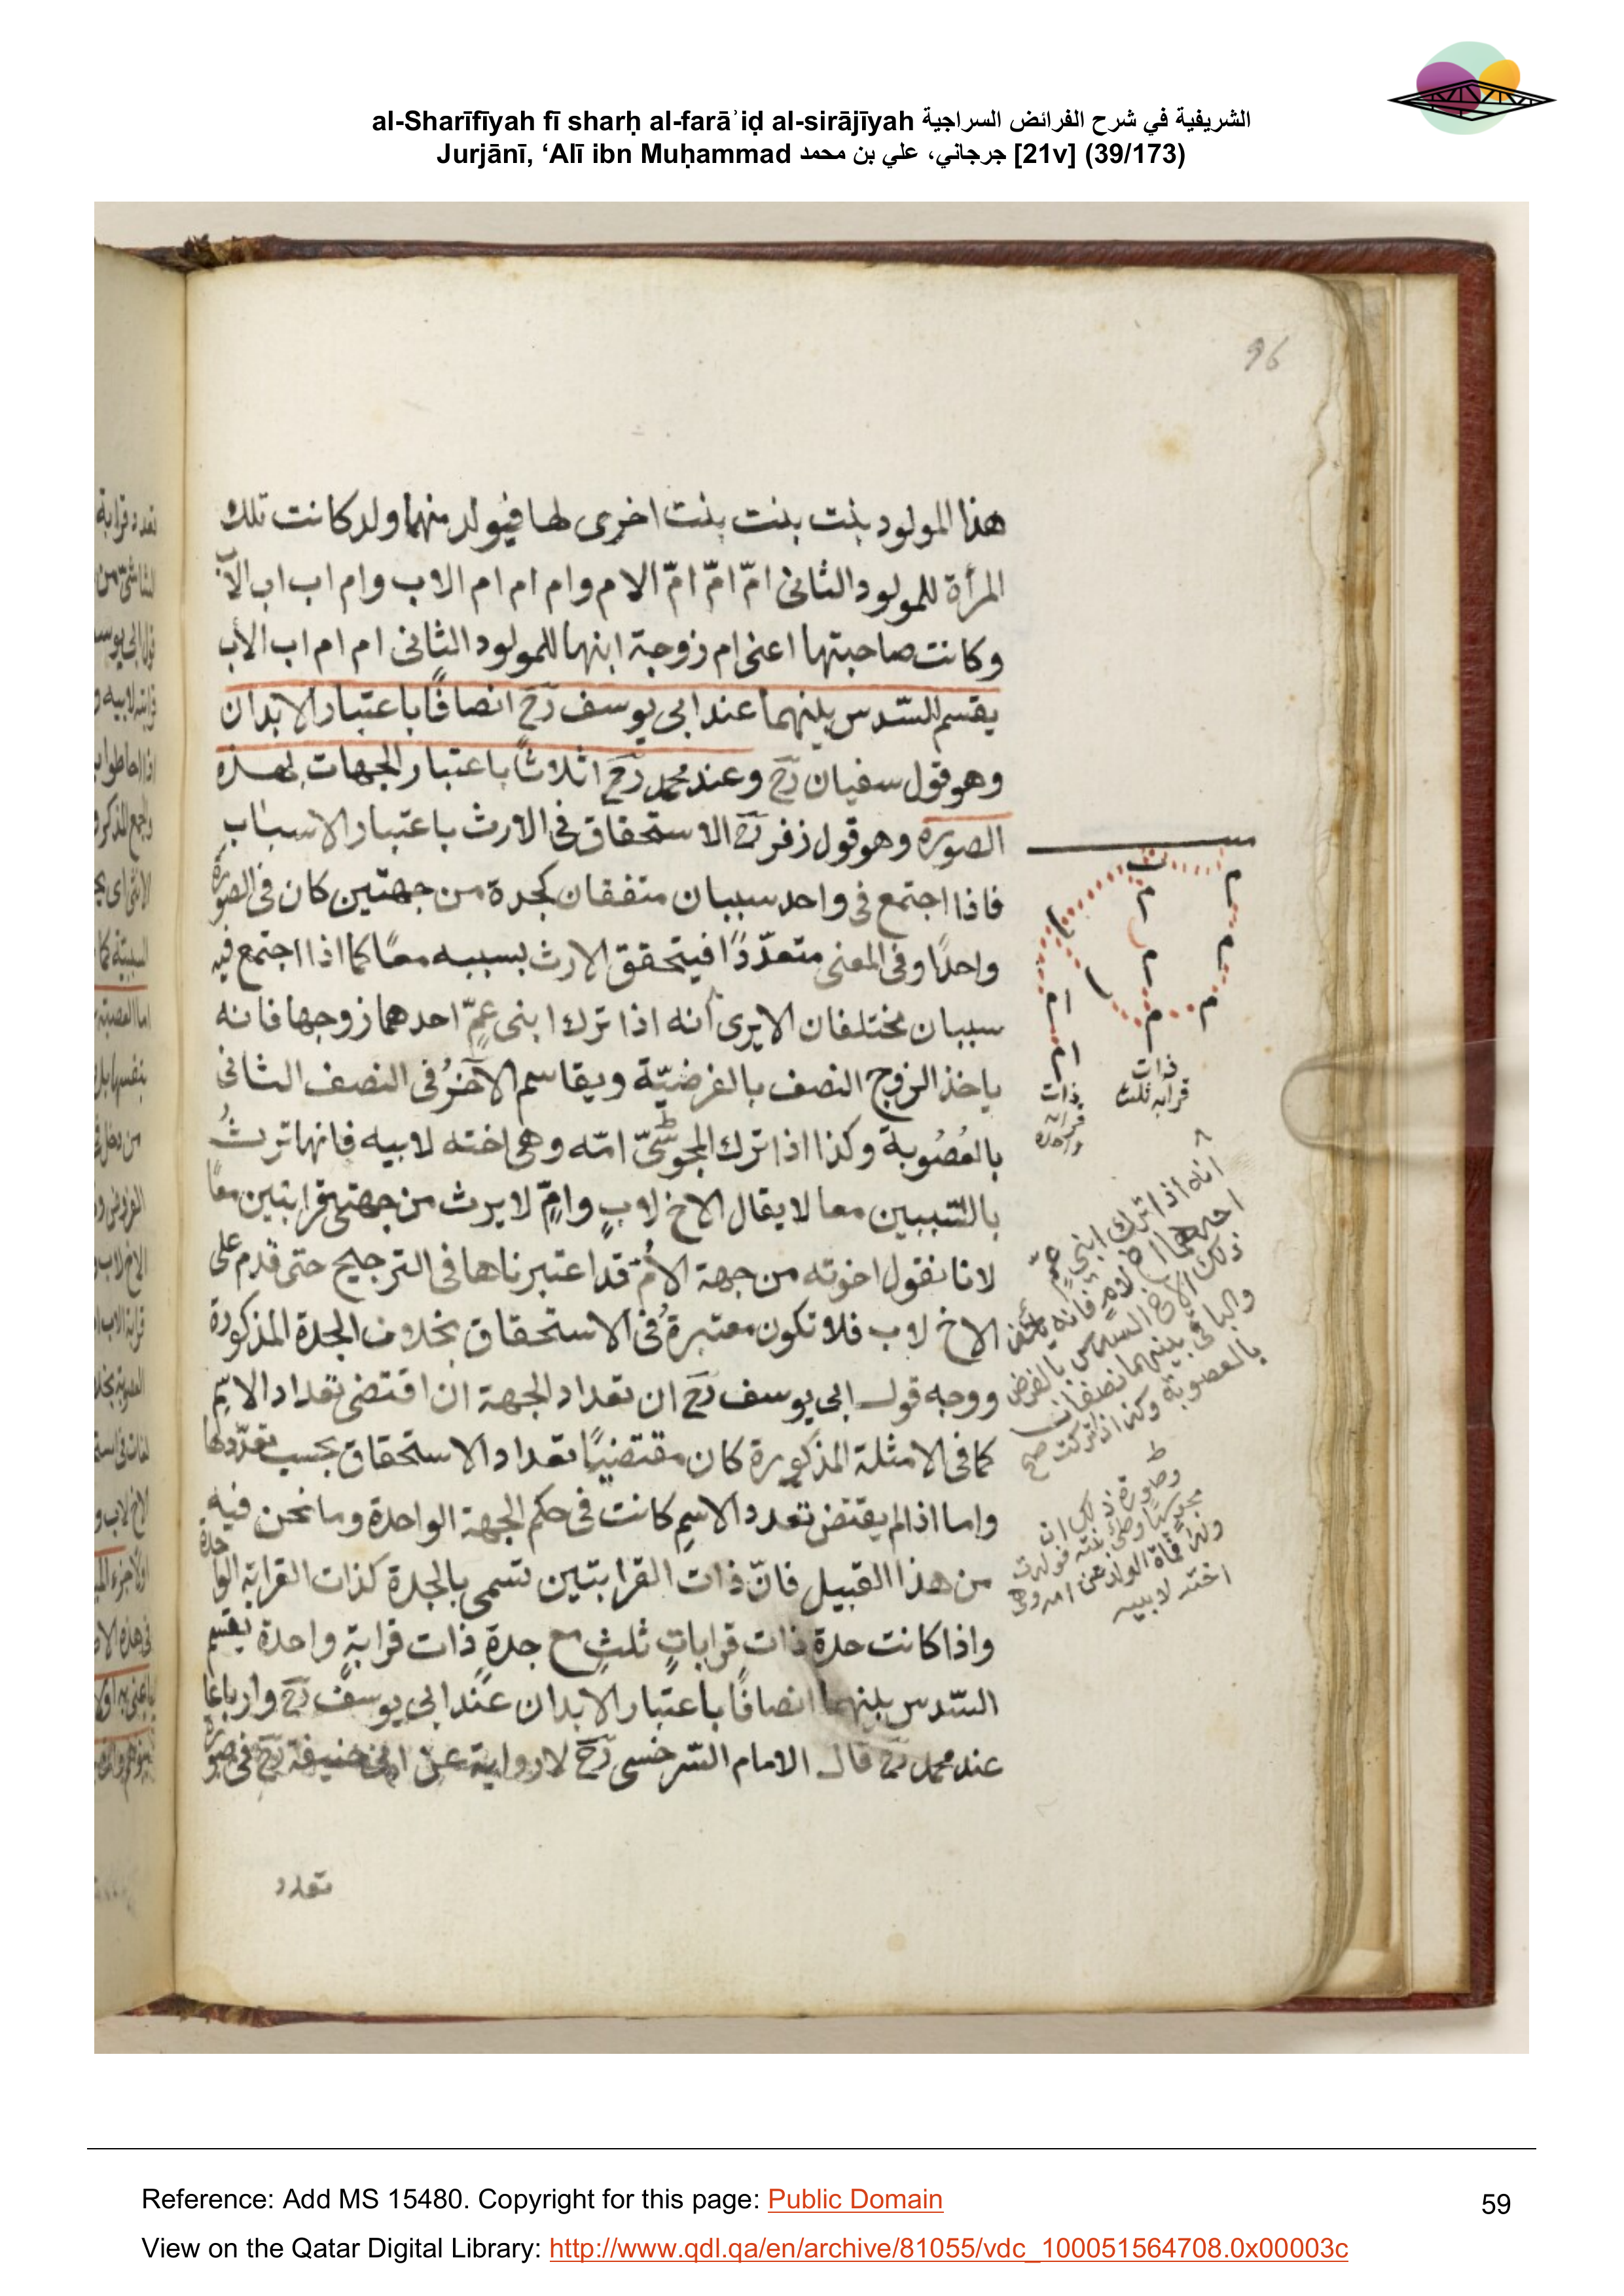 al-Sharīfīyah fī sharḥ al-farāʾiḍ al-sirājīyah الشريفية في شرح الفرائض السراجية
Jurjānī, ‘Alī ibn Muḥammad جرجاني، علي بن محمد [21v] (39/173)
96
هذا المولود بنت بنت بنت اخرى لها فيولد منهما ولد كانت تلك
المرأة للمولود الثانى امّ امّ امّ الام وام ام ام الاب وام اب اب الاب
وكانت صاحبتها اعنى ام زوجة ابنها للمولود الثانى ام ام اب الأب
يقسم السّدس بينهما عند ابى يوسف رَح انصافًا باعتبار الابدان
وهو قول سفيان رَح وعند محمد رَح اثلاثًا باعتبار الجهات بهذه
الصورة وهو قول زفر رَح الاستحقاق فى الارث باعتبار الاسباب
فاذا اجتمع فى واحد سببان متفقان كجدة من جهتين كان فى الصورة
واحدًا وفى المعنى متعدّدًا فيتحقق الارث بسببه معًا كما اذا اجتمع فيه
سببان مختلفان الا يرى انه اذا ترك ابنى عمّ احدهما زوجها فانه
ياخذ الزوج النصف بالفرضيّة ويقاسم الآخرُ فى النصف الثانى
بالعُصُوبة وكذا اذا ترك المجوسىّ امّه وهى اخته لابيه فانها ترثُ
بالسّببين معا لا يقال الاخ لابٍ وامٍّ لا يرث من جهتى قرابتين معًا
لانا نقول اخوته من جهة الاُمّ قد اعتبرناها فى الترجيح حتى قدم على
الاخ لاب فلا تكون معتبرةً فى الاستحقاق بخلاف الجدة المذكورة
ووجه قول ابى يوسف رَح ان تعداد الجهة ان اقتضى تعداد الاسمِ
كما فى الامثلة المذكورة كان مقتضيًا تعداد الاستحقاق بحسب تعدّدها
واما اذا لم يقتض تعدد الاسمِ كانت فى حكم الجهة الواحدة وما نحن فيه
من هذا القبيل فانّ ذات القرابتين تسمى بالجدة كذات القرابة الواحدة
واذا كانت جدة ذات قراباتٍ ثلثٍ مع جدةٍ ذات قرابةٍ واحدة يقسم
السّدس بينهما انصافًا باعتبار الابدان عند ابى يوسف رَح وارباعا
عند محمد رَح قال الامام السّرخسى رَح لا رواية عن ابى حنيفة رَح فى صورة
تعدد
م
ت
م
م
م
م
م
م
ام
ام
ذات
قرابه ثلث
ذات
قرابه
واحده
انه اذا ترك ابنى عمّ
احدهما اخ لامٍ فانه ياخذ
ذلك الاخ السدس بالفرض
والباقى بينهما نصفان
بالعصوبة وكذا اذا تركت صح
وصورة ذلك ان
مجوسيا وطى بنته فولدت
ولدا فمات الولد عن امه وهى
اخته لابيه
Reference: Add MS 15480. Copyright for this page: Public Domain
View on the Qatar Digital Library: http://www.qdl.qa/en/archive/81055/vdc_100051564708.0x00003c
59